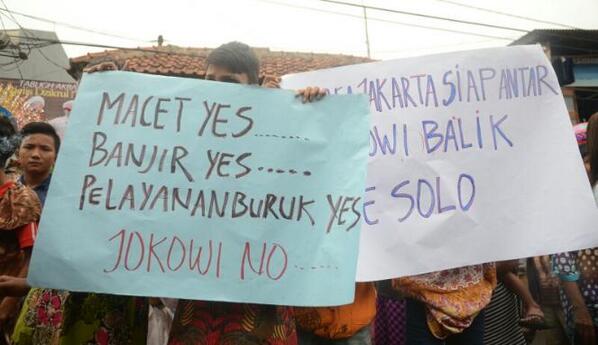 MACET YES......
BANJIR YES.....
PELAYANAN BURUK YES
JOKOWI NO......
JAKARTA SIAP ANTAR
BALIK
SOLO
TABUGH AKBAR